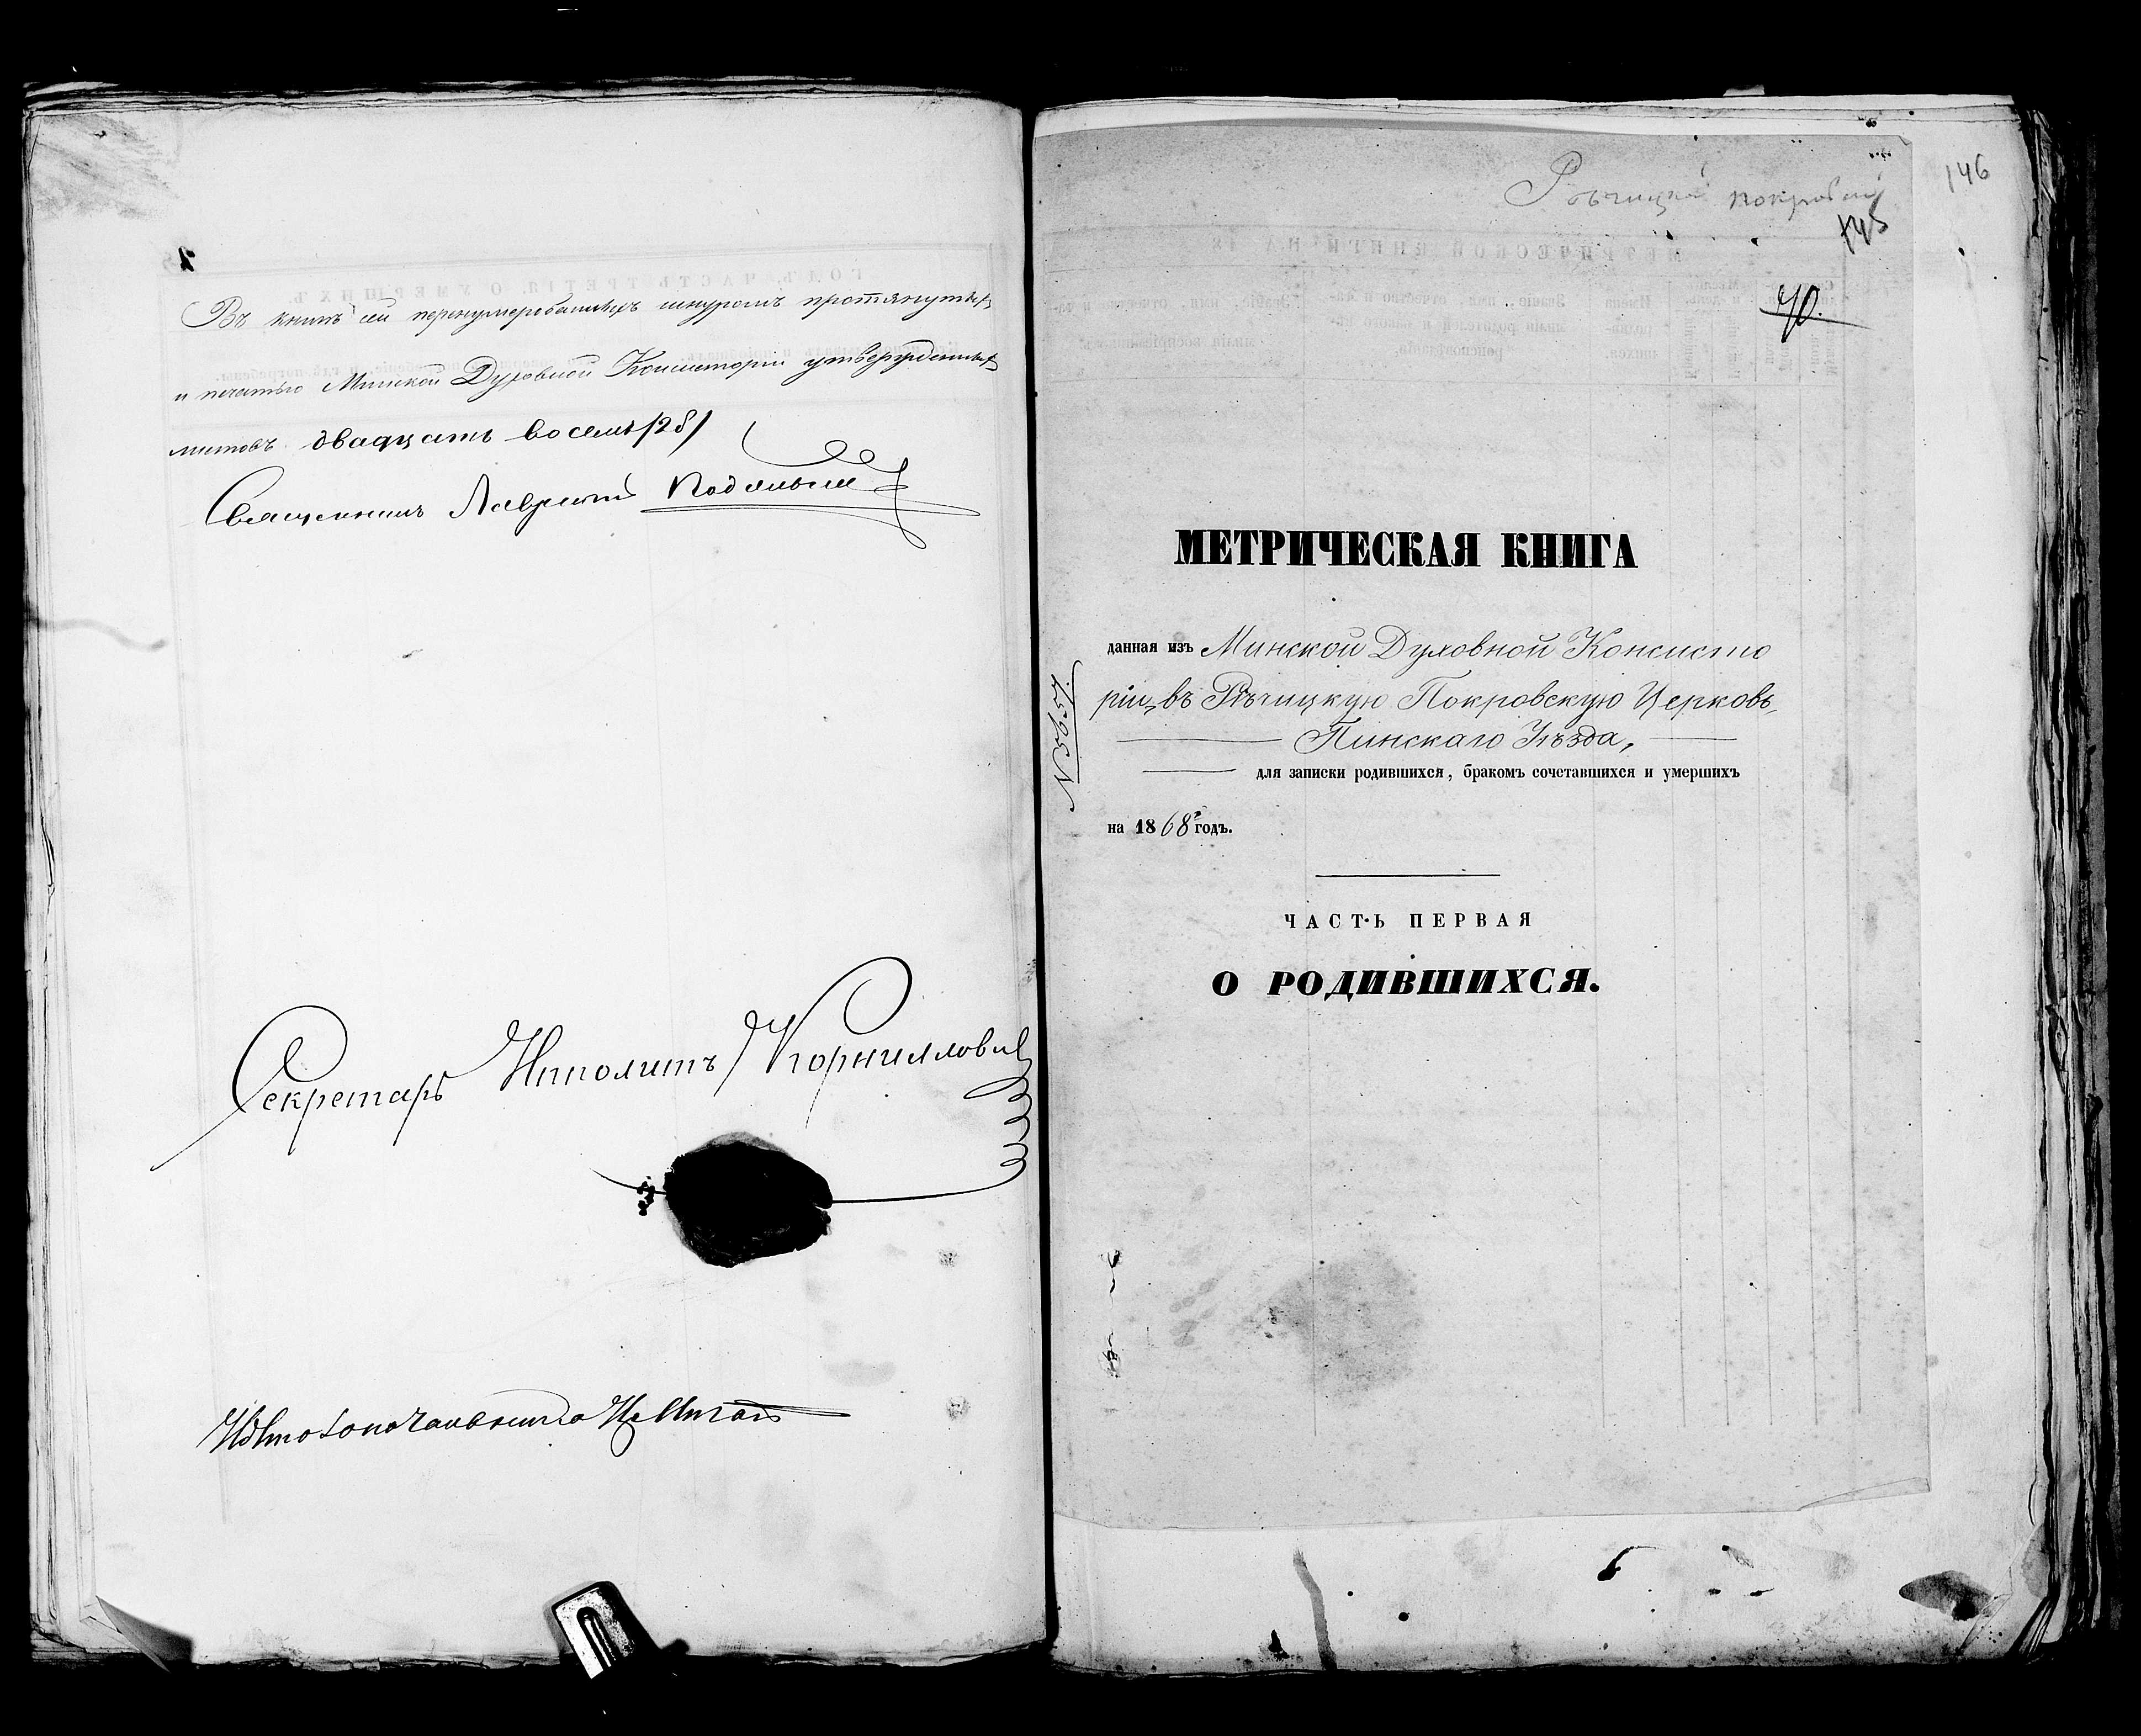 Въ книгѣ сей перенумерованныхъ шнуромъ протянутыхъ
и печатью Минской Духовной Консисторіи утвержденныхъ
листовъ двадцать восемь /28/
Священникъ Лаврентій
Секретарь Ипполитъ Корниллович
146
Рѣчицкой покровской
145
40.
МЕТРИЧЕСКАЯ КНИГА
данная изъ Минской Духовной Консисто
ріи, въ Рѣчицкую Покровскую Церковь,
Пинскаго Уѣзда,
для записки родившихся, бракомъ сочетавшихся и умершихъ
на 1868 годъ.
№ 5657.
ЧАСТЬ ПЕРВАЯ
О РОДИВШИХСЯ.